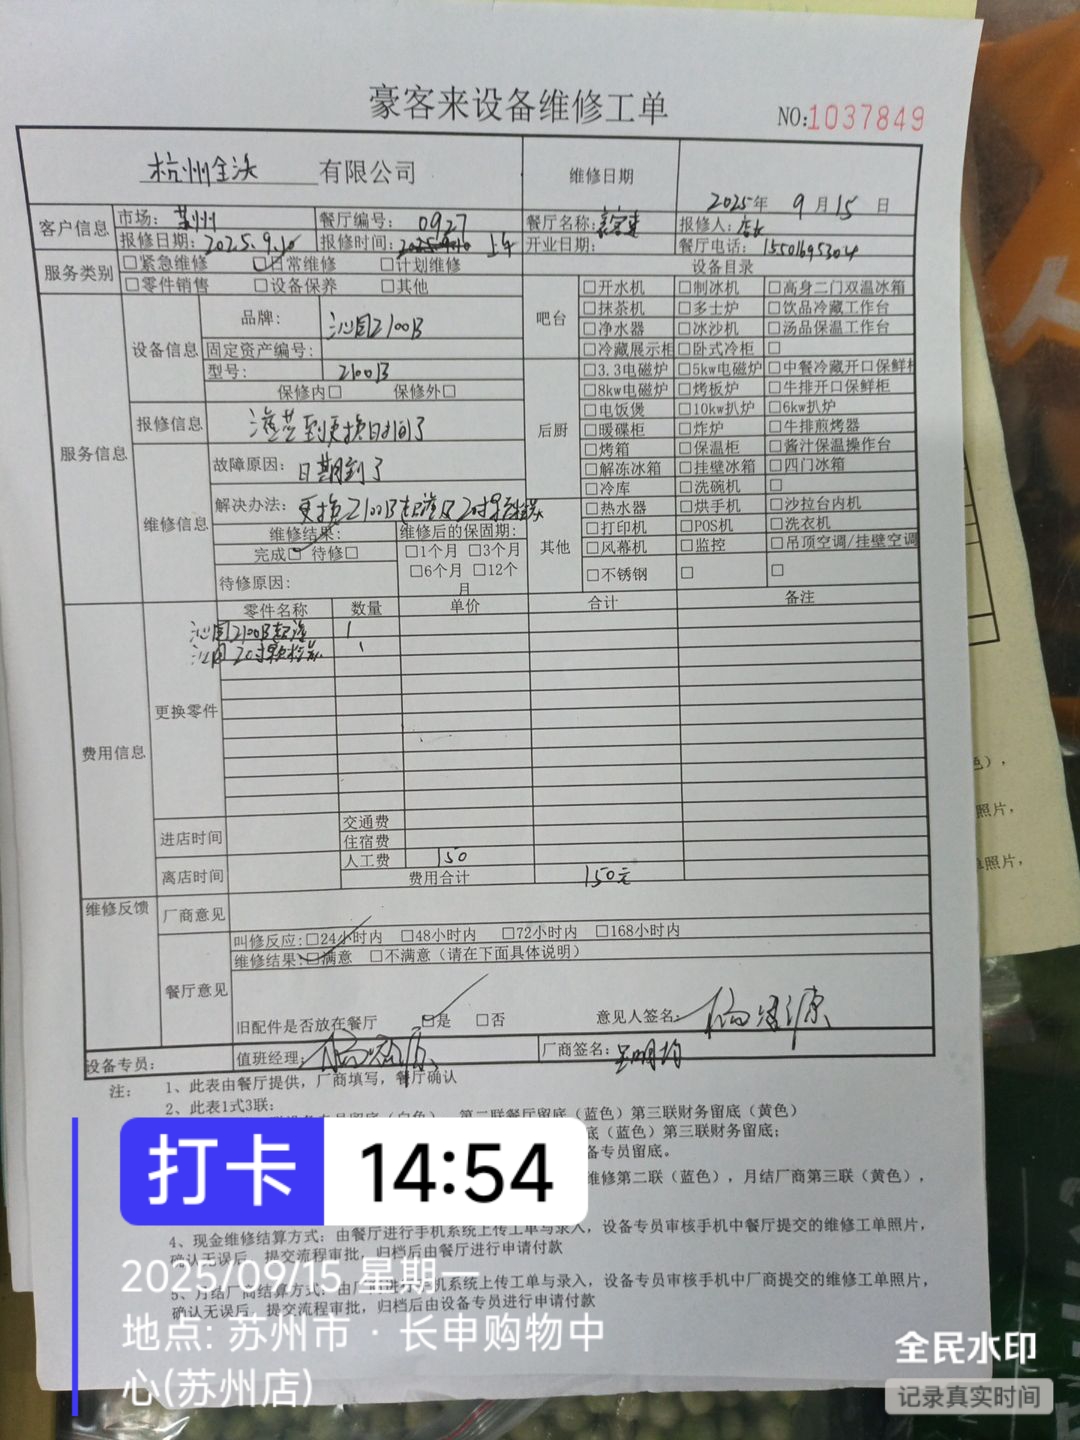 豪客来设备维修工单
NO:1037849
杭州全沃 有限公司
维修日期
2025年 9月15日
客户信息
市场: 苏州
餐厅编号: 0927
餐厅名称:
报修人:
报修日期: 2025.9.10
报修时间: 上午
开业日期:
餐厅电话: 15501695304
服务类别
□紧急维修 □日常维修 □计划维修
□零件销售 □设备保养 □其他
设备目录
服务信息
设备信息
品牌: 沁园2100B
固定资产编号:
型号: 2100B
保修内□ 保修外□
报修信息
滤芯到更换日时间了
维修信息
故障原因: 日期到了
解决办法: 更换2100B超滤及20寸颗粒炭
维修结果:
完成□ 待修□
待修原因:
维修后的保固期:
□1个月 □3个月
□6个月 □12个月
吧台
□开水机 □制冰机 □高身二门双温冰箱
□抹茶机 □多士炉 □饮品冷藏工作台
□净水器 □冰沙机 □汤品保温工作台
□冷藏展示柜 □卧式冷柜 □
后厨
□3.3电磁炉 □5kw电磁炉 □中餐冷藏开口保鲜柜
□8kw电磁炉 □烤板炉 □牛排开口保鲜柜
□电饭煲 □10kw扒炉 □6kw扒炉
□暖碟柜 □炸炉 □牛排煎烤器
□烤箱 □保温柜 □酱汁保温操作台
□解冻冰箱 □挂壁冰箱 □四门冰箱
□冷库 □洗碗机 □
其他
□热水器 □烘手机 □沙拉台内机
□打印机 □POS机 □洗衣机
□风幕机 □监控 □吊顶空调/挂壁空调
□不锈钢 □ □
费用信息
更换零件
零件名称 数量 单价 合计 备注
沁园2100B超滤 1
沁园20寸颗粒炭 1
进店时间
离店时间
交通费
住宿费
人工费 150
费用合计 150元
维修反馈
厂商意见
餐厅意见
叫修反应:□24小时内 □48小时内 □72小时内 □168小时内
维修结果:□满意 □不满意（请在下面具体说明）
旧配件是否放在餐厅 □是 □否 意见人签名:
设备专员:
值班经理:
厂商签名: 吴明均
注: 1、此表由餐厅提供，厂商填写，餐厅确认
2、此表1式3联:
第二联餐厅留底（蓝色）第三联财务留底（黄色）
底（蓝色）第三联财务留底;
备专员留底。
维修第二联（蓝色），月结厂商第三联（黄色），
4、现金维修结算方式: 由餐厅进行手机系统上传工单与录入，设备专员审核手机中餐厅提交的维修工单照片，
确认无误后，提交流程审批，归档后由餐厅进行申请付款
5、月结厂商结算方式: 由厂商进行手机系统上传工单与录入，设备专员审核手机中厂商提交的维修工单照片，
确认无误后，提交流程审批，归档后由设备专员进行申请付款
色），
照片，
单照片，
打卡 14:54
2025/09/15 星期一
地点: 苏州市·长申购物中
心(苏州店)
全民水印
记录真实时间